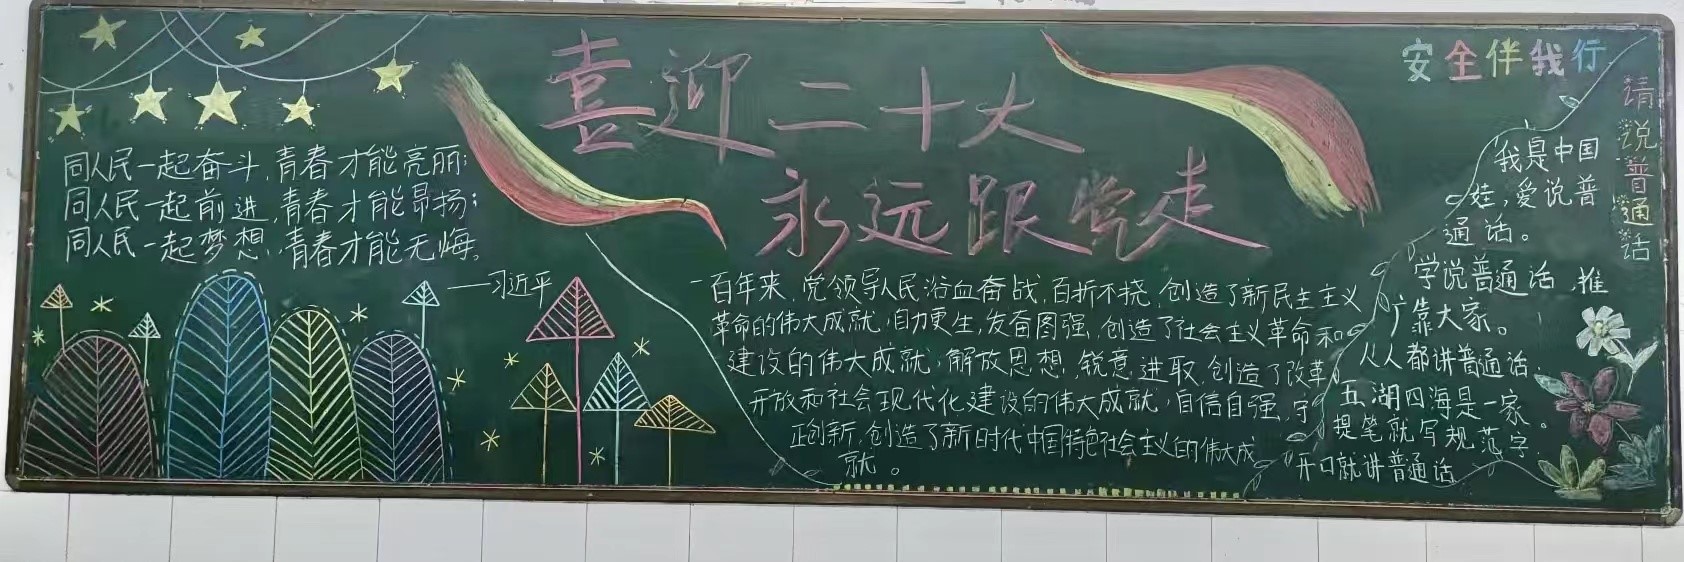 喜迎二十大
永远跟党走
同人民一起奋斗,青春才能亮丽;
同人民一起前进,青春才能昂扬;
同人民一起梦想,青春才能无悔。
——习近平
一百年来,党领导人民浴血奋战,百折不挠,创造了新民主主义
革命的伟大成就,自力更生,发奋图强,创造了社会主义革命和
建设的伟大成就,解放思想,锐意进取,创造了改革
开放和社会现代化建设的伟大成就,自信自强,守
正创新,创造了新时代中国特色社会主义的伟大成
就。
安全伴我行
请说普通话
我是中国
娃,爱说普
通话。
学说普通话,推
广靠大家。
人人都讲普通话,
五湖四海是一家。
提笔就写规范字,
开口就讲普通话